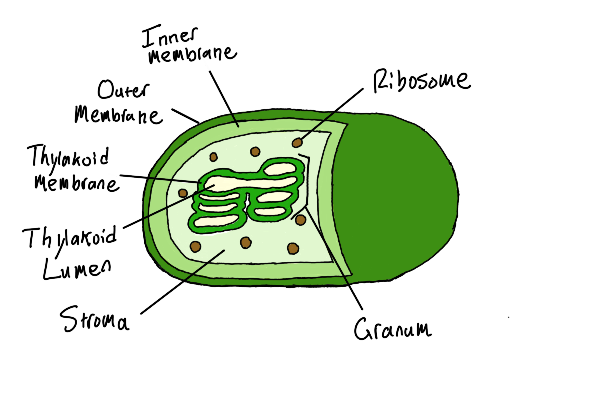 Inner
membrane
Outer
Membrane
Ribosome
Thylakoid
Membrane
Thylakoid
Lumen
Stroma
Granum